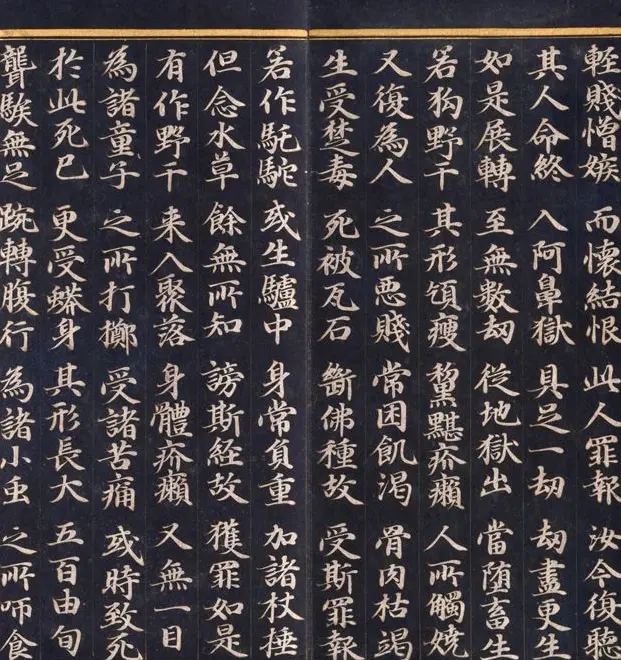 輕賤憎嫉 而懷結恨 此人罪報 汝今復聽
其人命終 入阿鼻獄 具足一劫 劫盡更生
如是展轉 至無數劫 從地獄出 當堕畜生
若狗野干 其形頎瘦 黧黮疥癩 人所觸嬈
又復為人 之所惡賤 常困飢渴 骨肉枯竭
生受楚毒 死被瓦石 斷佛種故 受斯罪報
若作馲駝 或生驢中 身常負重 加諸杖捶
但念水草 餘無所知 謗斯経故 獲罪如是
有作野干 来入聚落 身體疥癩 又無一目
為諸童子 之所打擲 受諸苦痛 或時致死
於此死已 更受蟒身 其形長大 五百由旬
聾騃無足 踠轉腹行 為諸小虫 之所咂食